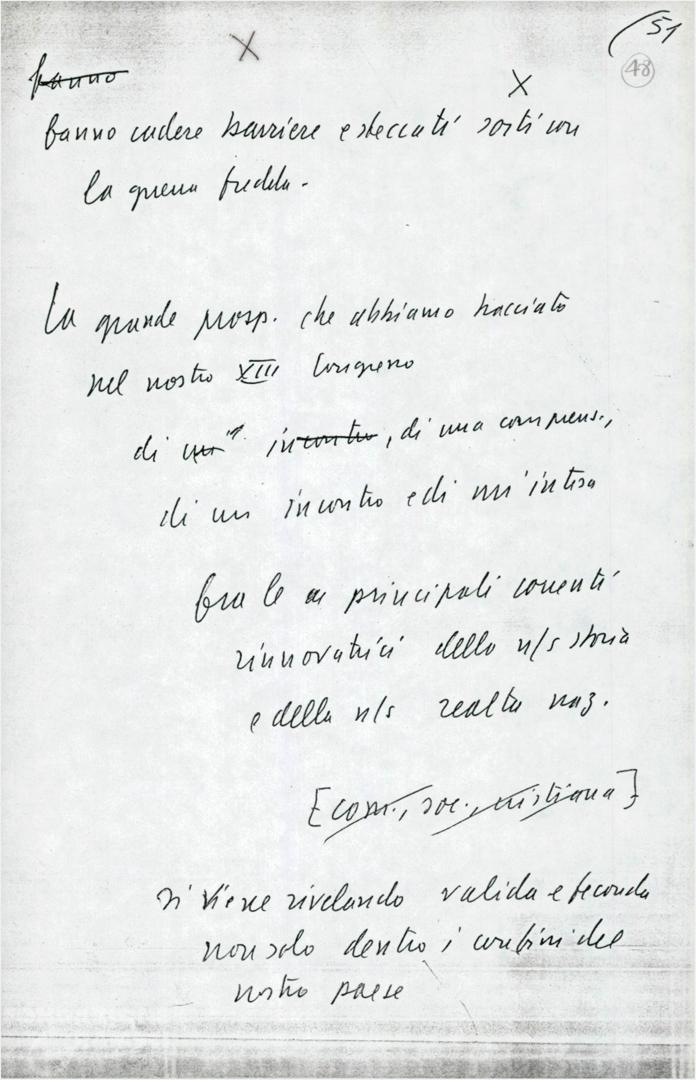 51
48
X
X
fanno
fanno cadere barriere e steccati sorti con
la guerra fredda.
La grande prosp. che abbiamo tracciato
nel nostro XIII Congresso
di un incontro, di una comprens.,
di un incontro e di un'intesa
fra le principali correnti
rinnovatrici della n/s storia
e della n/s realtà naz.
[com., soc., cristiana]
si viene rivelando valida e feconda
non solo dentro i confini del
nostro paese